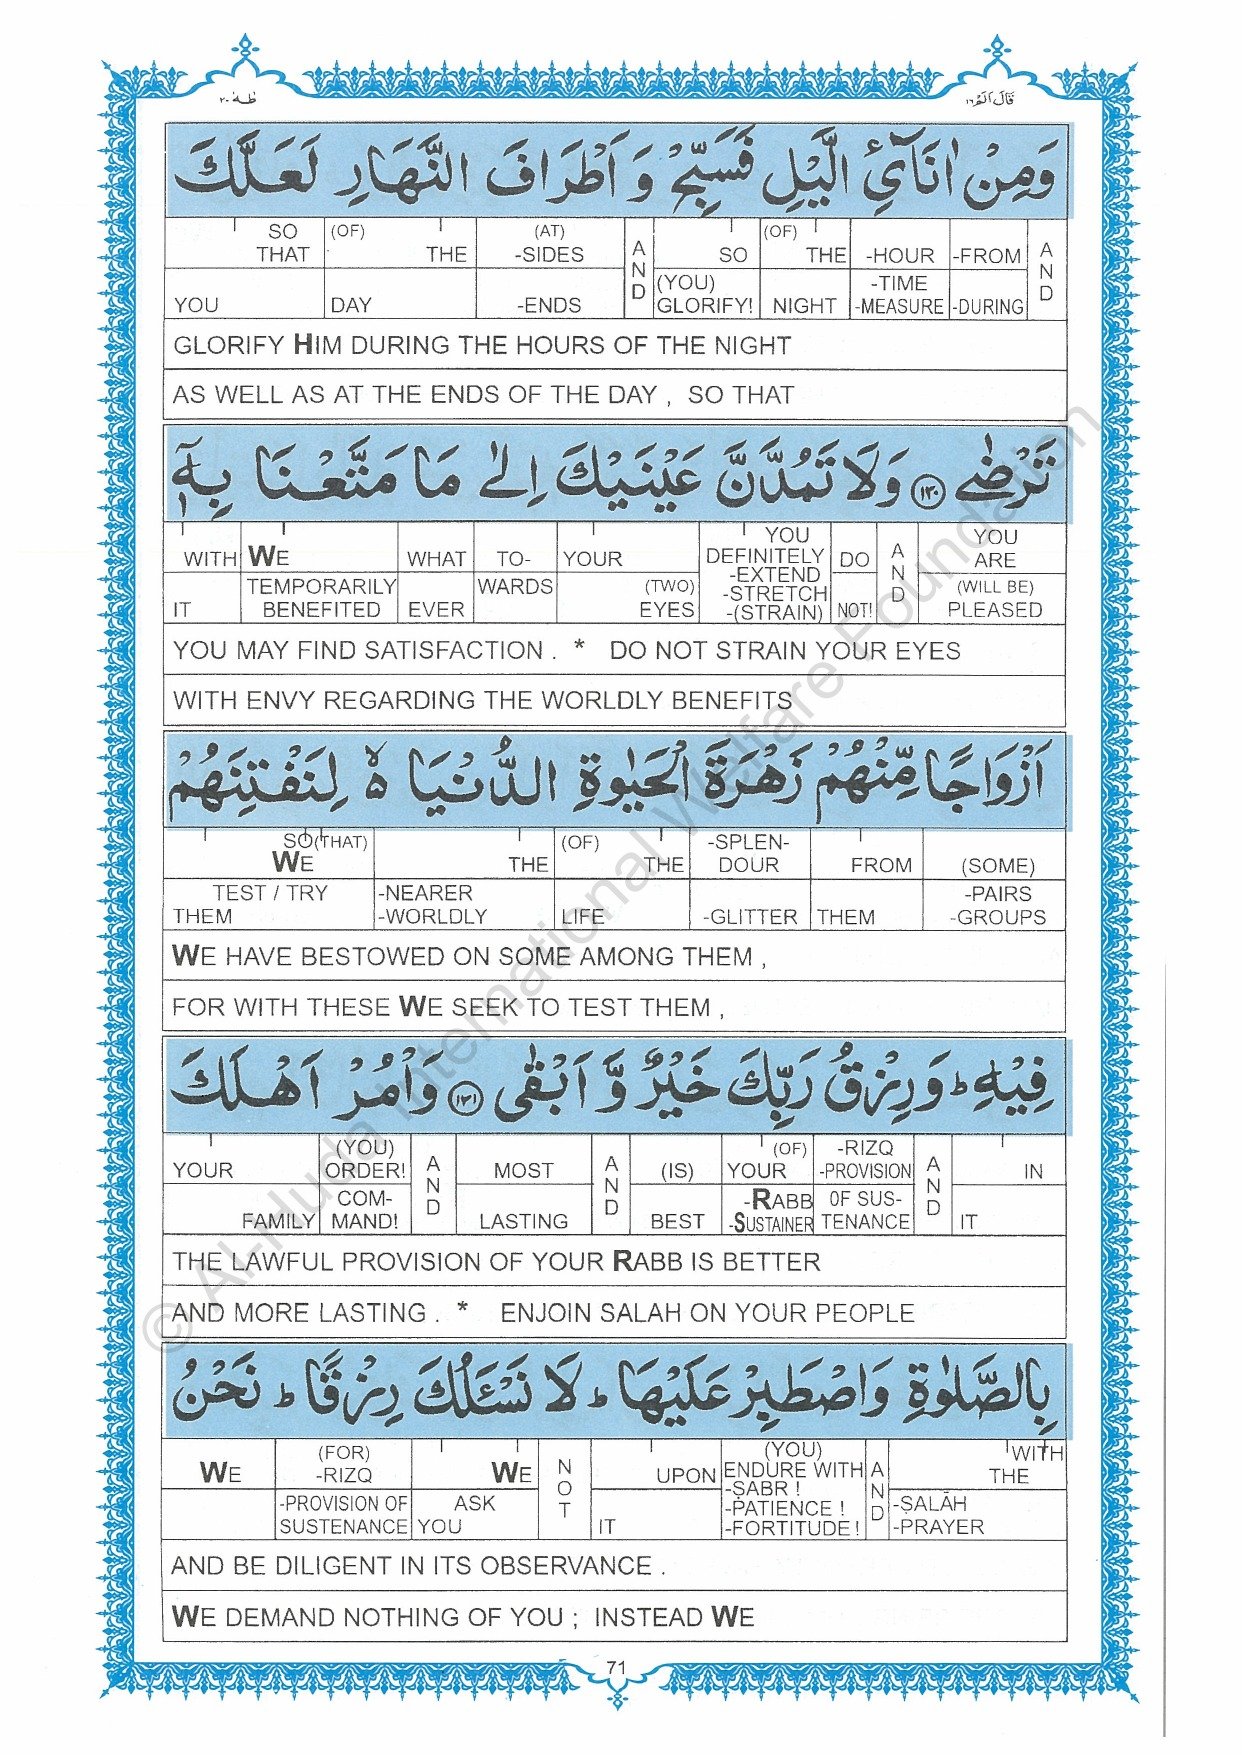 طٰهٰ ٢٠
قَالَ اَلَمْ ١٦
وَمِنْ اٰنَآئِ الَّيْلِ فَسَبِّحْ وَ اَطْرَافَ النَّهَارِ لَعَلَّكَ
SO THAT YOU | (OF) THE DAY | (AT) -SIDES -ENDS | AND | SO (YOU) GLORIFY! | (OF) THE NIGHT | -HOUR -TIME -MEASURE | -FROM -DURING | AND
GLORIFY HIM DURING THE HOURS OF THE NIGHT
AS WELL AS AT THE ENDS OF THE DAY , SO THAT
تَرْضٰى ١٣٠ وَلَا تَمُدَّنَّ عَيْنَيْكَ اِلٰى مَا مَتَّعْنَا بِهٖٓ
WITH IT | WE TEMPORARILY BENEFITED | WHAT EVER | TO- WARDS | YOUR (TWO) EYES | YOU DEFINITELY -EXTEND -STRETCH -(STRAIN) | DO NOT! | AND | YOU ARE (WILL BE) PLEASED
YOU MAY FIND SATISFACTION . * DO NOT STRAIN YOUR EYES
WITH ENVY REGARDING THE WORLDLY BENEFITS
اَزْوَاجًا مِّنْهُمْ زَهْرَةَ الْحَيٰوةِ الدُّنْيَا ۵ لِنَفْتِنَهُمْ
SO(THAT) WE TEST / TRY THEM | THE -NEARER -WORLDLY | (OF) THE LIFE | -SPLEN- DOUR -GLITTER | FROM THEM | (SOME) -PAIRS -GROUPS
WE HAVE BESTOWED ON SOME AMONG THEM ,
FOR WITH THESE WE SEEK TO TEST THEM ,
فِيْهِ ؕ وَرِزْقُ رَبِّكَ خَيْرٌ وَّ اَبْقٰى ١٣١ وَاْمُرْ اَهْلَكَ
YOUR FAMILY | (YOU) ORDER! COM- MAND! | AND | MOST LASTING | AND | (IS) BEST | (OF) YOUR -RABB -SUSTAINER | -RIZQ -PROVISION OF SUS- TENANCE | AND | IN IT
THE LAWFUL PROVISION OF YOUR RABB IS BETTER
AND MORE LASTING . * ENJOIN SALAH ON YOUR PEOPLE
بِالصَّلٰوةِ وَاصْطَبِرْ عَلَيْهَا ؕ لَا نَسْـَٔلُكَ رِزْقًا ؕ نَحْنُ
WE | (FOR) -RIZQ -PROVISION OF SUSTENANCE | WE ASK YOU | NOT | UPON IT | (YOU) ENDURE WITH -ṢABR ! -PATIENCE ! -FORTITUDE! | AND | WITH THE -ṢALĀH -PRAYER
AND BE DILIGENT IN ITS OBSERVANCE .
WE DEMAND NOTHING OF YOU ; INSTEAD WE
71
© Al-Huda International Welfare Foundation